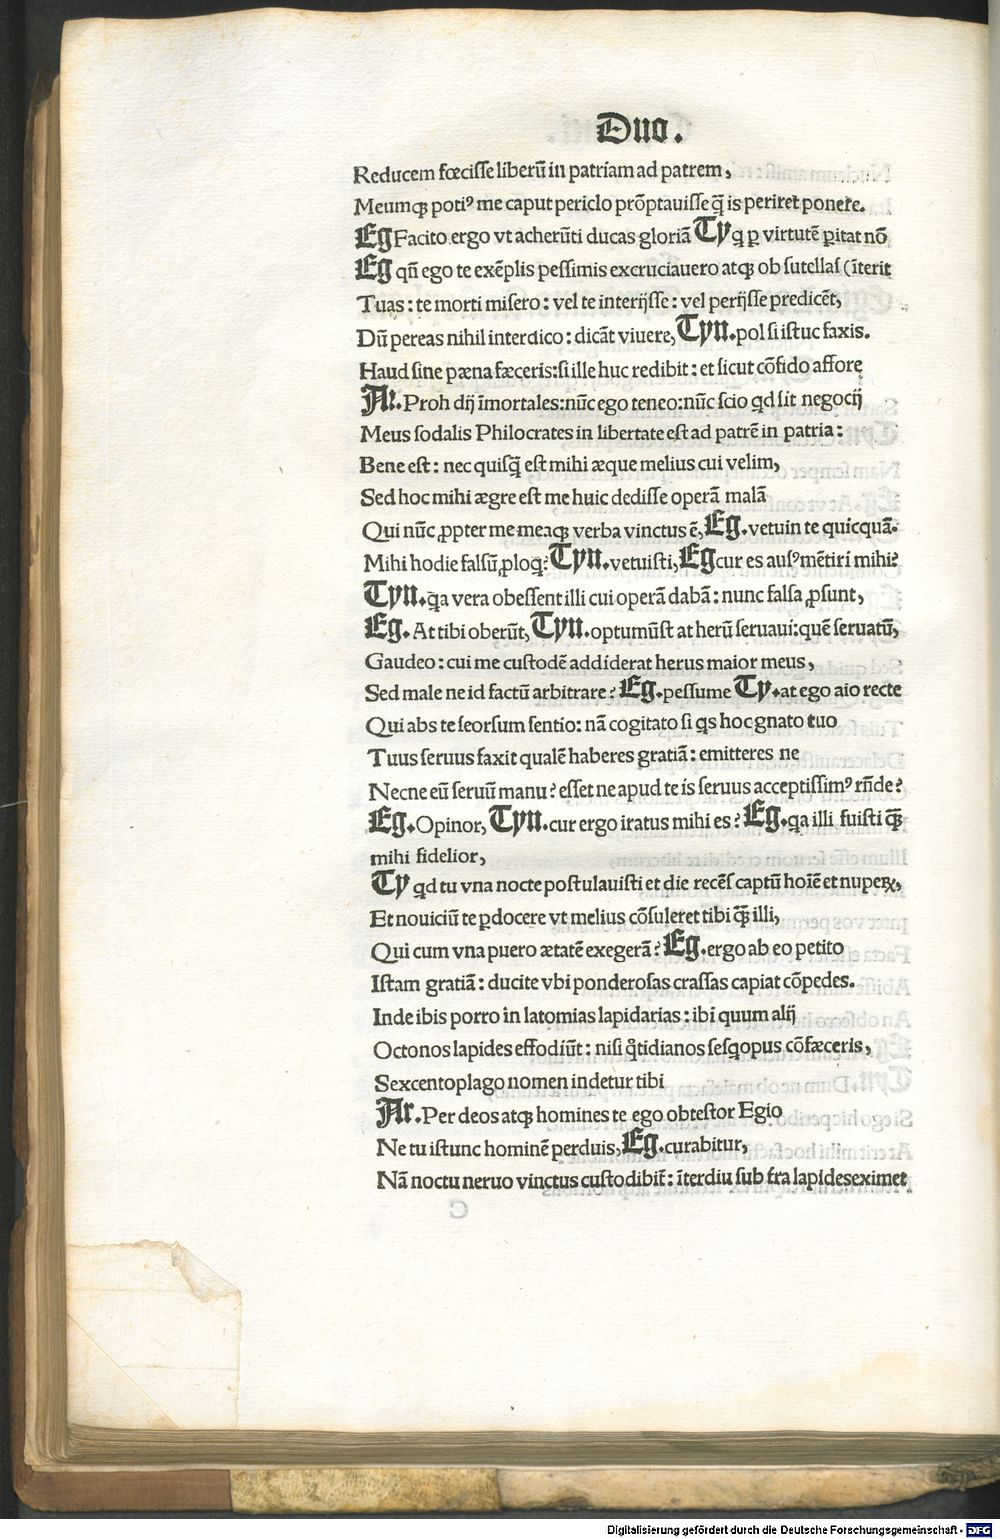 Duo.
Reducem fœcisse liberū in patriam ad patrem,
Meumqꝫ potiꝰ me caput periclo prōptauisse q̄ is periret ponere.
Eg Facito ergo vt acherūti ducas gloriā Ty q ꝑ virtutē ꝑitat nō
Eg qn̄ ego te exēplis pessimis excruciauero atqꝫ ob sutellas (īterit
Tuas: te morti misero: vel te interijsse: vel perijsse predicēt,
Dū pereas nihil interdico: dicāt viuere, Tyn. pol si istuc faxis.
Haud sine pæna fæceris: si ille huc redibit: et sicut cōfido affore
Ar. Proh dij īmortales: nūc ego teneo: nūc scio qd sit negocij
Meus sodalis Philocrates in libertate est ad patrē in patria:
Bene est: nec quisq̄ est mihi æque melius cui velim,
Sed hoc mihi ægre est me huic dedisse operā malā
Qui nūc ꝓpter me meaqꝫ verba vinctus ē, Eg. vetuin te quicquā.
Mihi hodie falsū ꝓloq? Tyn. vetuisti, Eg cur es ausꝰ mētiri mihi?
Tyn. qa vera obessent illi cui operā dabā: nunc falsa ꝓsunt,
Eg. At tibi oberūt, Tyn. optumūst at herū seruaui: quē seruatū,
Gaudeo: cui me custodē addiderat herus maior meus,
Sed male ne id factū arbitrare? Eg. pessume Ty. at ego aio recte
Qui abs te seorsum sentio: nā cogitato si qs hoc gnato tuo
Tuus seruus faxit qualē haberes gratiā: emitteres ne
Necne eū seruū manu? esset ne apud te is seruus acceptissimꝰ rn̄de?
Eg. Opinor, Tyn. cur ergo iratus mihi es? Eg. qa illi fuisti q̄ꝫ
mihi fidelior,
Ty qd tu vna nocte postulauisti et die recēs captū hoīe et nuperꝝ,
Et nouiciū te ꝑdocere vt melius cōsuleret tibi q̄ꝫ illi,
Qui cum vna puero ætatē exegerā? Eg. ergo ab eo petito
Istam gratiā: ducite vbi ponderosas crassas capiat cōpedes.
Inde ibis porro in latomias lapidarias: ibi quum alij
Octonos lapides effodiūt: nisi q̄tidianos sesqopus cōfæceris,
Sexcentoplago nomen indetur tibi
Ar. Per deos atqꝫ homines te ego obtestor Egio
Ne tu istunc hominē perduis, Eg. curabitur,
Nā noctu neruo vinctus custodibit̄: īterdiu sub t̄ra lapides eximet
Digitalisierung gefördert durch die Deutsche Forschungsgemeinschaft - DFG